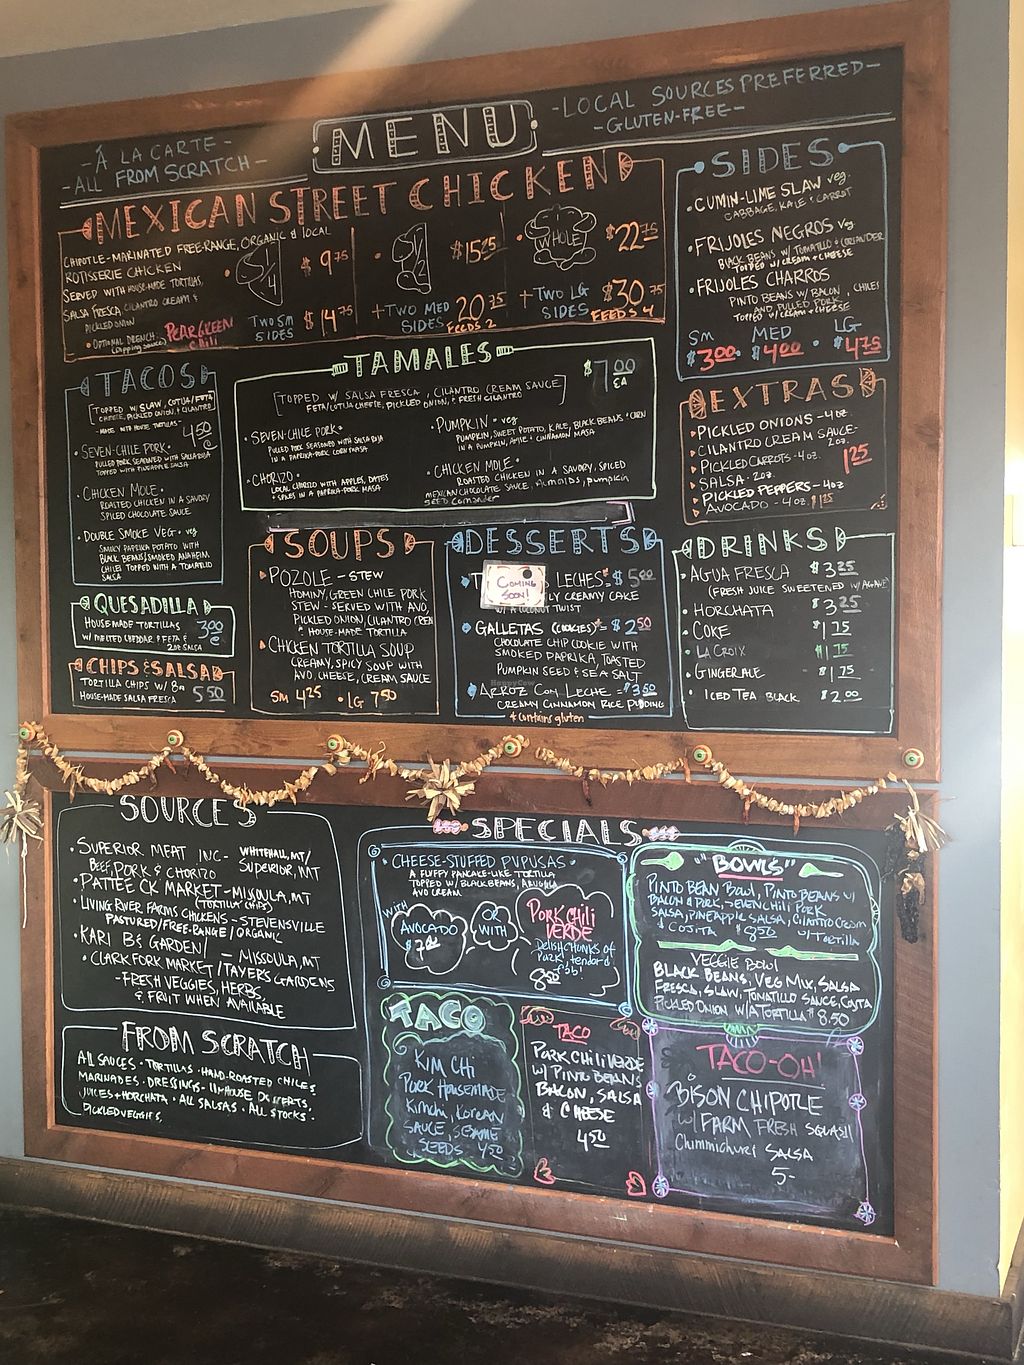 - À LA CARTE -
- ALL FROM SCRATCH -
MENU
- LOCAL SOURCES PREFERRED -
- GLUTEN-FREE -
MEXICAN STREET CHICKEN
CHIPOTLE-MARINATED FREE-RANGE, ORGANIC & LOCAL
ROTISSERIE CHICKEN
SERVED WITH HOUSE-MADE TORTILLAS,
SALSA FRESCA, CILANTRO CREAM &
PICKLED ONION
• OPTIONAL DRENCH:
(dipping sauce)
PEAR GREEN
Chili
1/4
$9.75
TWO SM
SIDES
$14.75
1/2
+TWO MED
SIDES
20.75
FEEDS 2
WHOLE
$22.75
+TWO LG
SIDES
$30.75
FEEDS 4
SIDES
• CUMIN-LIME SLAW veg.
CABBAGE, KALE & CARROT
• FRIJOLES NEGROS Veg
BLACK BEANS W/ TOMATILLO & CORIANDER
TOPPED W/ CREAM & CHEESE
• FRIJOLES CHARROS
PINTO BEANS W/ BACON, CHILES
AND PULLED PORK
TOPPED W/ CREAM & CHEESE
SM MED LG
$3.00 • $4.00 • $4.75
TACOS
[TOPPED W/ SLAW, COTIJA/FETA
CHEESE, PICKLED ONION, & CILANTRO]
4.50
• SEVEN-CHILE PORK •
PULLED PORK SEASONED WITH SALSA ROJA
TOPPED WITH PINEAPPLE SALSA
• CHICKEN MOLE •
ROASTED CHICKEN IN A SAVORY
SPICED CHOCOLATE SAUCE
• DOUBLE SMOKE VEG • veg
SMOKY PAPRIKA POTATO WITH
BLACK BEANS/SMOKED ANAHEIM
CHILES TOPPED WITH A TOMATILLO
SALSA
TAMALES
$7.00
EA
[TOPPED W/ SALSA FRESCA, CILANTRO CREAM SAUCE]
FETA/COTIJA CHEESE, PICKLED ONION, & FRESH CILANTRO
• SEVEN-CHILE PORK •
PULLED PORK SEASONED WITH SALSA ROJA
IN A PAPRIKA-PORK CORN MASA
• CHORIZO •
LOCAL CHORIZO WITH APPLES, DATES
& SPICES IN A PAPRIKA-PORK MASA
• PUMPKIN • veg
PUMPKIN, SWEET POTATO, KALE, BLACK BEANS & CORN
IN A PUMPKIN, & CINNAMON MASA
• CHICKEN MOLE •
ROASTED CHICKEN IN A SAVORY, SPICED
MEXICAN CHOCOLATE SAUCE, Almonds, pumpkin
SEED
EXTRAS
PICKLED ONIONS - 4 oz.
CILANTRO CREAM SAUCE -
2oz.
PICKLED CARROTS - 4 oz.
1.25
SALSA - 2oz
PICKLED PEPPERS - 4oz
AVOCADO - 4 oz.
QUESADILLA
HOUSE MADE TORTILLAS
3.00
W/ MELTED CHEDDAR & FETA &
2oz SALSA
CHIPS & SALSA
TORTILLA CHIPS W/ 8oz
HOUSE-MADE SALSA FRESCA
5.50
SOUPS
POZOLE - STEW
HOMINY, GREEN CHILE PORK
STEW - SERVED WITH AVO,
PICKLED ONION, CILANTRO CREM
& HOUSE-MADE TORTILLA
CHICKEN TORTILLA SOUP
CREAMY, SPICY SOUP WITH
AVO, CHEESE, CREAM, SAUCE
SM 4.25 • LG 7.50
DESSERTS
COMING
SOON!
LECHES = $5.00
LY CREAMY CAKE
W/ A COCONUT TWIST
GALLETAS (COOKIES) = $2.50
CHOCOLATE CHIP COOKIE WITH
SMOKED PAPRIKA, TOASTED
PUMPKIN SEED & SEA SALT
ARROZ CON LECHE = $3.50
CREAMY CINNAMON RICE PUDDING
contains gluten
DRINKS
AGUA FRESCA $3.25
(FRESH JUICE SWEETENED W/ AGAVE)
HORCHATA $3.25
COKE $1.75
LA CROIX $1.75
GINGER ALE $1.75
ICED TEA BLACK $2.00
SOURCES
• SUPERIOR MEAT INC - WHITEHALL, MT/
BEEF, PORK & CHORIZO SUPERIOR, MT
• PATTEE CK MARKET - MISSOULA, MT
(TORTILLA CHIPS)
• LIVING RIVER FARMS CHICKENS - STEVENSVILLE
PASTURED/FREE-RANGE/ORGANIC
• KARI B'S GARDEN/ - MISSOULA, MT
• CLARK FORK MARKET/TAYERS GARDENS
- FRESH VEGGIES, HERBS,
& FRUIT WHEN AVAILABLE
FROM SCRATCH
ALL SAUCES • TORTILLAS • HAND-ROASTED CHILES
MARINADES • DRESSINGS • IN-HOUSE DESSERTS
JUICES & HORCHATA • ALL SALSAS • ALL STOCKS
PICKLED VEGGIES,
SPECIALS
• CHEESE-STUFFED PUPUSAS •
A FLUFFY PANCAKE-LIKE TORTILLA
TOPPED W/ BLACK BEANS, ARUGULA
AND CREAM
WITH
AVOCADO
$7.00
OR
WITH
PORK CHILI
VERDE
Delish chunks of
Pork, tender &
fab!
8.50
"BOWLS"
PINTO BEAN BOWL, PINTO BEANS W/
BACON & PORK, SEVEN CHILI PORK
SALSA, PINEAPPLE SALSA, CILANTRO CREAM
& COJITA $8.50 W/ TORTILLA
VEGGIE BOWL
BLACK BEANS, VEG MIX, SALSA
FRESCA, SLAW, TOMATILLO SAUCE, COJITA
PICKLED ONION W/ A TORTILLA $8.50
TACO
KIM CHI
PORK HOUSEMADE
KIMCHI, KOREAN
SAUCE, SESAME
SEEDS 4.50
TACO
PORK CHILI VERDE
W/ PINTO BEANS
BACON, SALSA
& CHEESE
4.50
TACO-OH!
BISON CHIPOTLE
W/ FARM FRESH SQUASH
Chimmichuri SALSA
5-